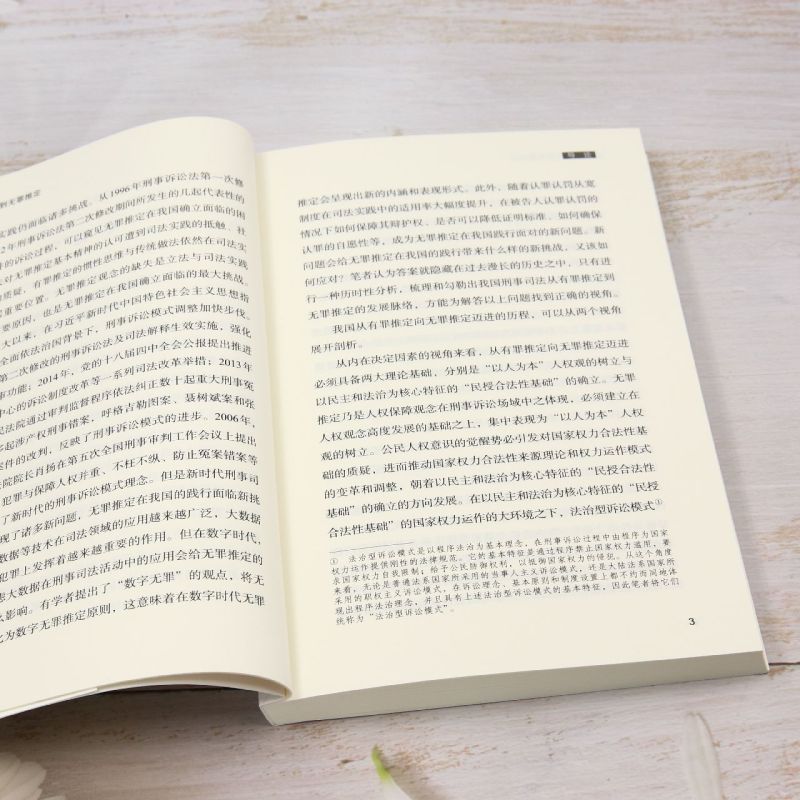 到无罪推定
实践仍面临诸多挑战。从1996年刑事诉讼法第一次修
2年刑事诉讼法第二次修改期间所发生的几起代表性的
件的诉讼过程，可以窥见无罪推定在我国确立面临的困
对无罪推定基本精神的认可遭到司法实践的抵触、社
的质疑，有罪推定的惯性思维与传统做法依然在司法实
重要位置。无罪推定观念的缺失是立法与司法实践
要原因，也是无罪推定在我国确立面临的最大挑战。
大以来，在习近平新时代中国特色社会主义思想指
全面依法治国背景下，刑事诉讼模式调整加快步伐。
第二次修改的刑事诉讼法及司法解释生效实施，强化
事功能；2014年，党的十八届四中全会公报提出推进
中心的诉讼制度改革等一系列司法改革举措；2013年
民法院通过审判监督程序依法纠正数十起重大刑事冤
多起涉产权刑事错案，呼格吉勒图案、聂树斌案和张
案件的改判，反映了刑事诉讼模式的进步。2006年，
法院院长肖扬在第五次全国刑事审判工作会议上提出
犯罪与保障人权并重、不枉不纵、防止冤案错案等
了新时代的刑事诉讼模式理念。但是新时代刑事司
现了诸多新问题，无罪推定在我国的践行面临新挑
数据等技术在司法领域的应用越来越广泛，大数据
犯罪上发挥着越来越重要的作用。但在数字时代，
虑大数据在刑事司法活动中的应用会给无罪推定的
么影响。有学者提出了“数字无罪”的观点，将无
化为数字无罪推定原则，这意味着在数字时代无罪
导 言
推定会呈现出新的内涵和表现形式。此外，随着认罪认罚从宽
制度在司法实践中的适用率大幅度提升，在被告人认罪认罚的
情况下如何保障其辩护权、是否可以降低证明标准、如何确保
认罪的自愿性等，成为无罪推定在我国践行面对的新问题。新
问题会给无罪推定在我国的践行带来什么样的新挑战，又该如
何应对？笔者认为答案就隐藏在过去漫长的历史之中，只有进
行一种历时性分析，梳理和勾勒出我国刑事司法从有罪推定到
无罪推定的发展脉络，方能为解答以上问题找到正确的视角。
我国从有罪推定向无罪推定迈进的历程，可以从两个视角
展开剖析。
从内在决定因素的视角来看，从有罪推定向无罪推定迈进
必须具备两大理论基础，分别是“以人为本”人权观的树立与
以民主和法治为核心特征的“民授合法性基础”的确立。无罪
推定乃是人权保障观念在刑事诉讼场域中之体现，必须建立在
人权观念高度发展的基础之上，集中表现为“以人为本”人权
观的树立。公民人权意识的觉醒势必引发对国家权力合法性基
础的质疑，进而推动国家权力合法性来源理论和权力运作模式
的变革和调整，朝着以民主和法治为核心特征的“民授合法性
基础”的确立的方向发展。在以民主和法治为核心特征的“民授
合法性基础”的国家权力运作的大环境之下，法治型诉讼模式①
① 法治型诉讼模式是以程序法治为基本理念，在刑事诉讼过程中由程序为国家
权力运作提供刚性的法律规范。它的基本特征是通过程序禁止国家权力滥用，要
求国家权力自我限制；给予公民防御权利，以抵御国家权力的侵犯。从这个角度
来看，无论是普通法系国家所采用的当事人主义诉讼模式，还是大陆法系国家所
采用的职权主义诉讼模式，在诉讼理念、基本原则和制度设置上都不约而同地体
现出程序法治理念，并且具有上述法治型诉讼模式的基本特征，因此笔者将它们
统称为“法治型诉讼模式”。
3